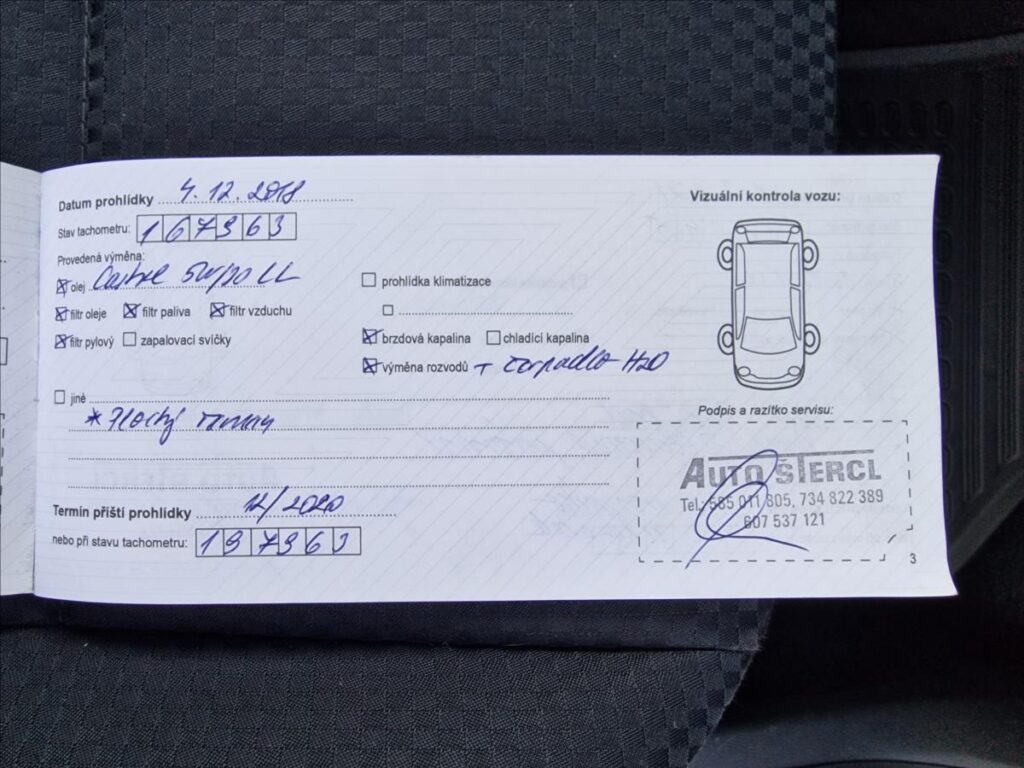 Datum prohlídky 4.12.2018
Stav tachometru: 167963
Provedená výměna:
olej Castrol LL
filtr oleje filtr paliva filtr vzduchu
filtr pylový zapalovací svíčky
prohlídka klimatizace
brzdová kapalina chladící kapalina
výměna rozvodů + čerpadlo H2O
jiné
Termín příští prohlídky 12/2020
nebo při stavu tachometru: 197963
Vizuální kontrola vozu:
Podpis a razítko servisu:
AUTO ŠTERCL
Tel.: 585 011 805, 734 822 389
607 537 121
3